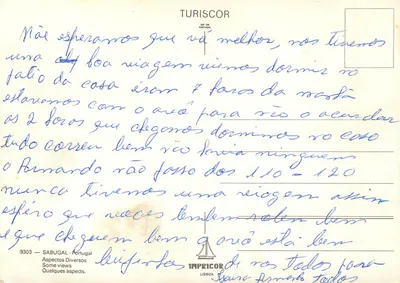 TURISCOR
Mãe esperamos que vá melhor, nos tivemos
uma boa viagem viemos dormir no
patio da casa eram 7 horas da manhã
estavamos com o avô para não o acordar
as 2 horas que chegamos dormimos no caso
tudo correu bem não havia ninguem
o Armando não passo dos 110 - 120
nunca tivemos uma viagem assim
espéro que voces tenbem bem
e que cheguem bem o avô está bem
beijinhos de nos todos para
Armando todos
9303 - SABUGAL - Portugal
Aspectos Diversos
Some views
Quelques aspects.
IMPRICOR
LISBON